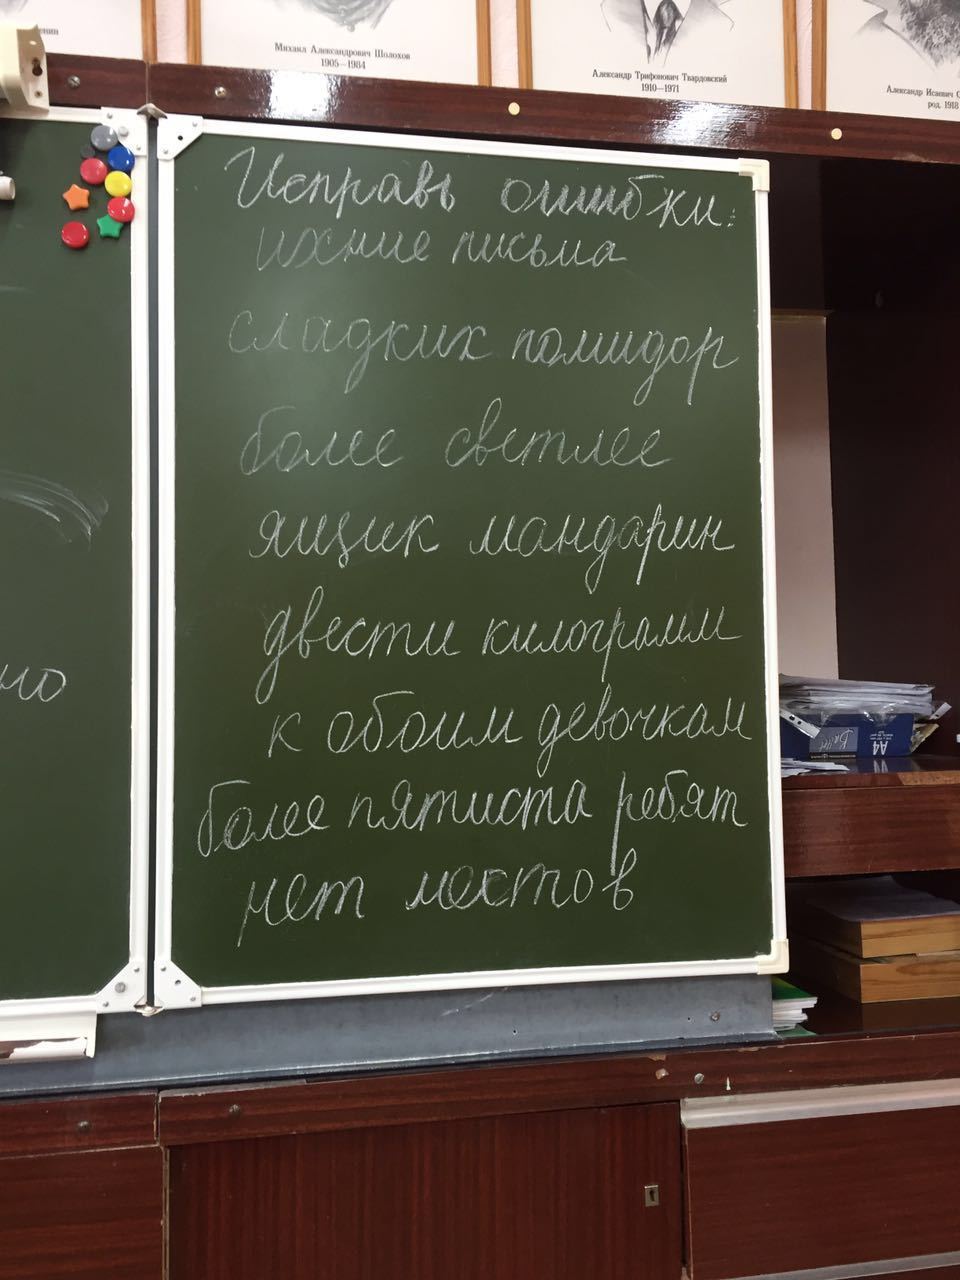 енин
Михаил Александрович Шолохов
1905—1984
Александр Трифонович Твардовский
1910—1971
Александр Исаевич С
род. 1918
Исправь ошибки:
ихние письма
сладких помидор
более светлее
ящик мандарин
двести килограмм
к обоим девочкам
более пятиста ребят
нет местов
но
A4